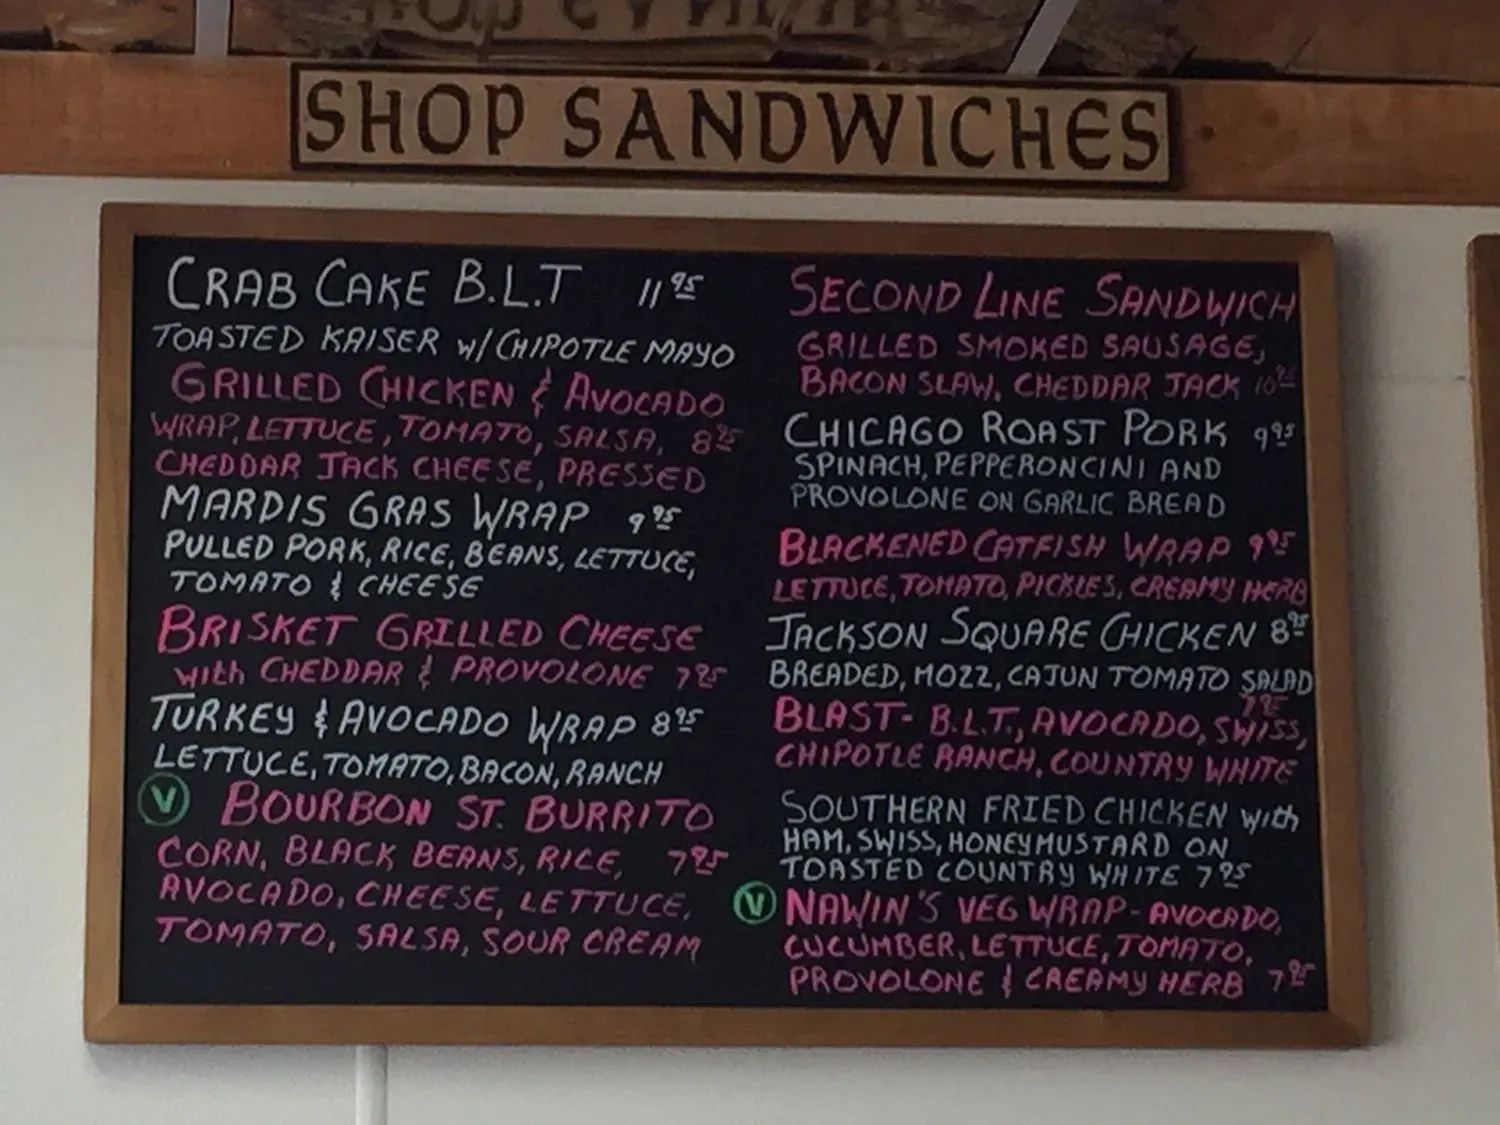 SHOP SANDWICHES
CRAB CAKE B.L.T 11 95
TOASTED KAISER W/ CHIPOTLE MAYO
GRILLED CHICKEN & AVOCADO
WRAP, LETTUCE, TOMATO, SALSA, 8 95
CHEDDAR JACK CHEESE, PRESSED
MARDIS GRAS WRAP 9 95
PULLED PORK, RICE, BEANS, LETTUCE,
TOMATO & CHEESE
BRISKET GRILLED CHEESE
with CHEDDAR & PROVOLONE 7 95
TURKEY & AVOCADO WRAP 8 95
LETTUCE, TOMATO, BACON, RANCH
V BOURBON ST. BURRITO
CORN, BLACK BEANS, RICE, 7 95
AVOCADO, CHEESE, LETTUCE,
TOMATO, SALSA, SOUR CREAM
SECOND LINE SANDWICH
GRILLED SMOKED SAUSAGE,
BACON SLAW, CHEDDAR JACK 10 95
CHICAGO ROAST PORK 9 95
SPINACH, PEPPERONCINI AND
PROVOLONE ON GARLIC BREAD
BLACKENED CATFISH WRAP 9 95
LETTUCE, TOMATO, PICKLES, CREAMY HERB
JACKSON SQUARE CHICKEN 8 95
BREADED, MOZZ, CAJUN TOMATO SALAD
7 95
BLAST- B.L.T., AVOCADO, SWISS,
CHIPOTLE RANCH, COUNTRY WHITE
SOUTHERN FRIED CHICKEN with
HAM, SWISS, HONEYMUSTARD ON
TOASTED COUNTRY WHITE 7 95
V NAWIN'S VEG WRAP- AVOCADO,
CUCUMBER, LETTUCE, TOMATO,
PROVOLONE & CREAMY HERB 7 95